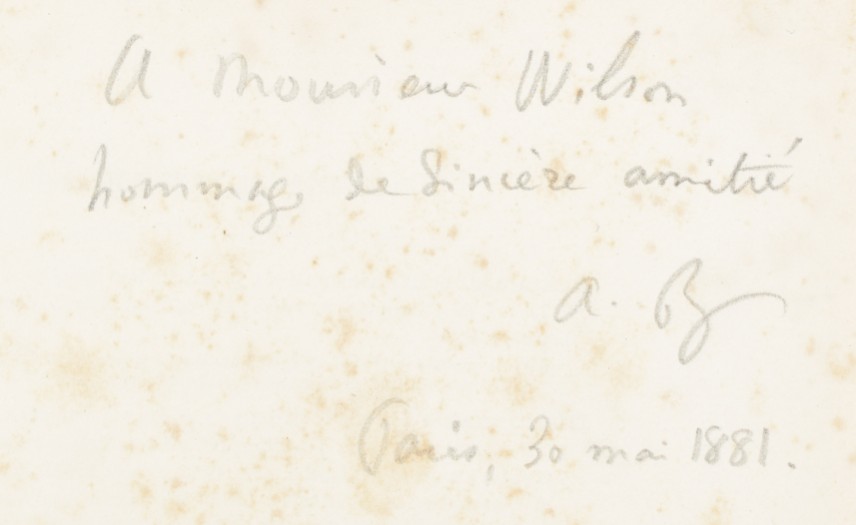 A Monsieur Wilson
hommage de sincère amitié
A. B
Paris, 30 mai 1881.